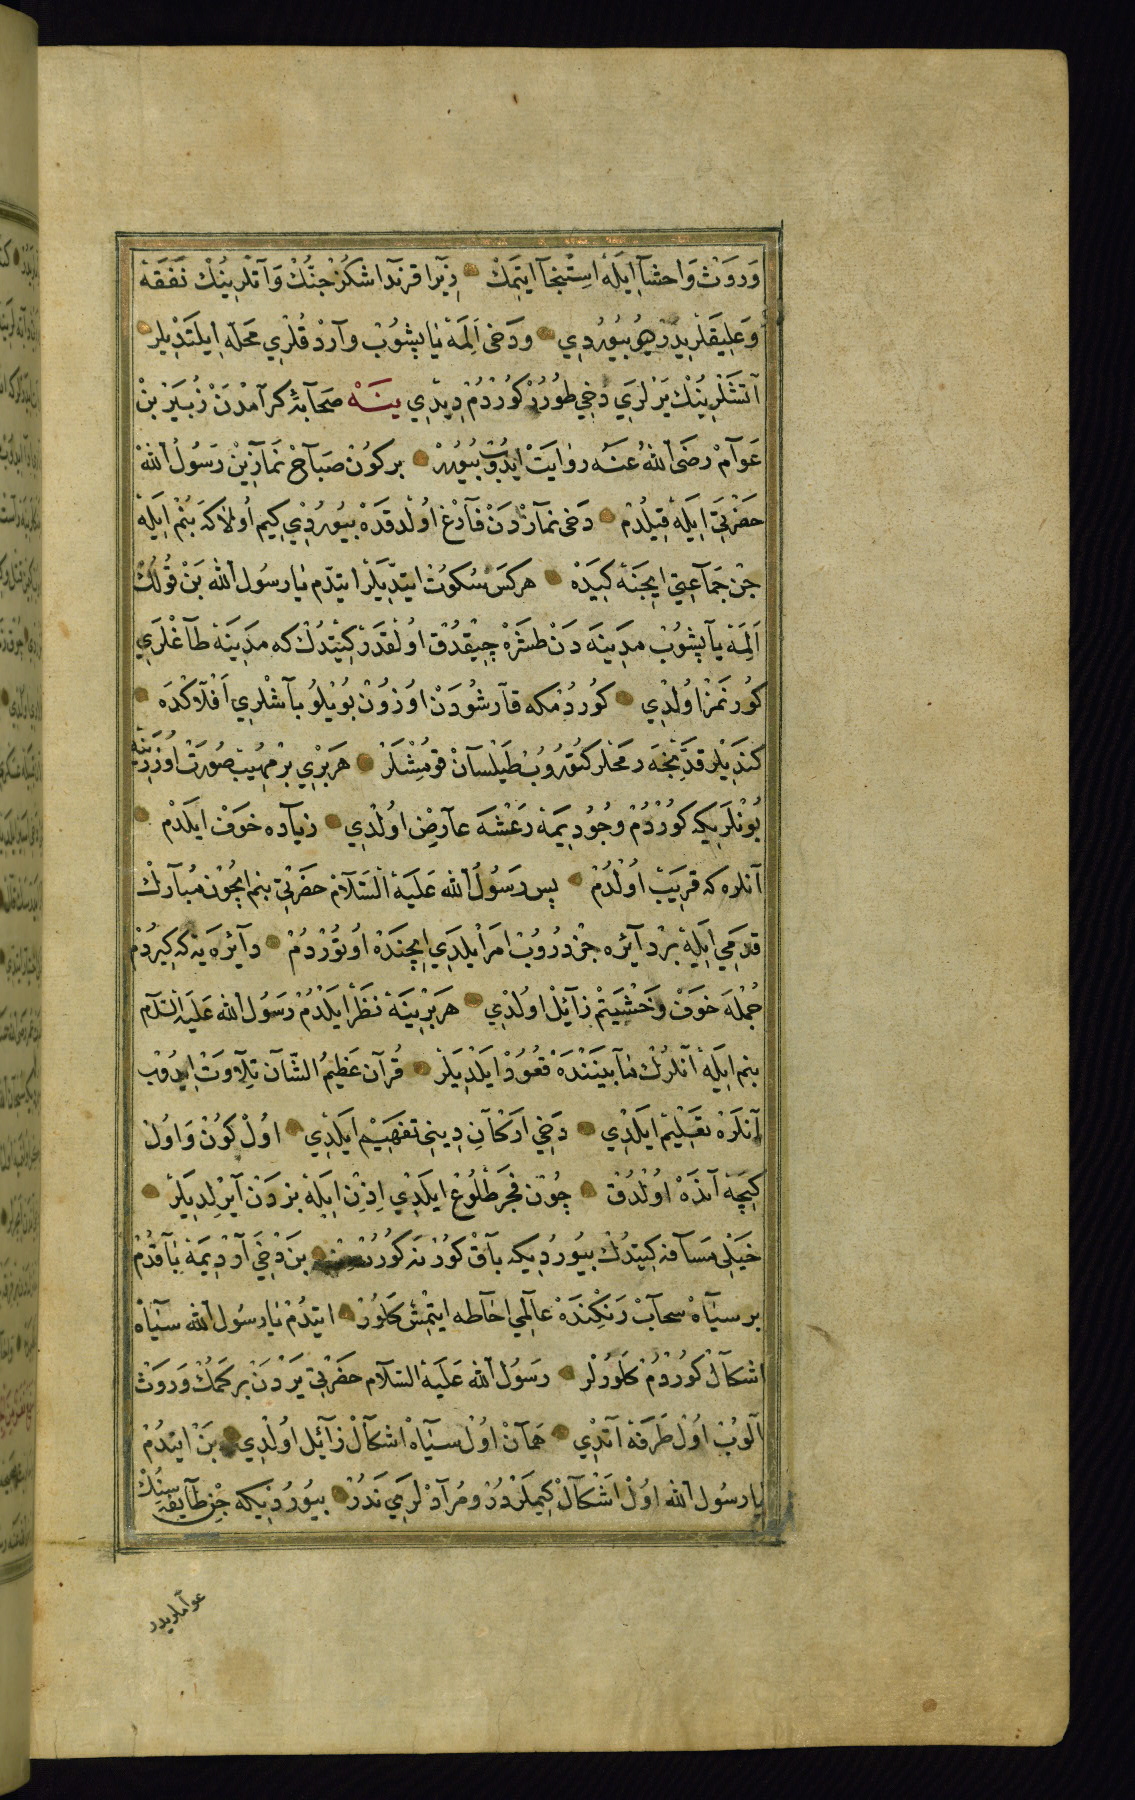 وَرَوَثْ وَاحشَا اِيلَهْ اِسْتِنْجَا اِيتِمَكْ زِيرَا قرنداشكُزْ جِنُّكْ وَآتْلَرِينُكْ نَفَقَهْ
وَعَلِيقَلَرِيدُرْ ديُو بيُورْدِي وَدَخى اَلِمَهْ يَاپِشُوبْ وآرْدْ قُلْرِي مَحَلَّه اِيلَتْدِيلَر
آتَشْلَرِينُكْ يَرْلَرِي دَخِي طُورُرْ كُورْدُمْ دِيدِي يِنَهْ صَحَابَۀ كرآمْدَنْ زُبَيَرْ بِنْ
عَوآمْ رضَىَ اللهُ عَنْه روَايَتْ اِيدُوبْ بُيُورُرْ بر كُونْ صَبَاحْ نَمَازِينْ رَسُولُ اللهْ
حَضْرَتِي اِيلَهْ قِيلْدُمْ دَخى نمازْدَنْ فَارِغْ اُولْدقدَهْ بيُورْدِي كِيم اُولا كه بنُمْ اِيلَهْ
جِنْ جَمَاعَتِي اِيچِنَهْ كِيدَهْ هركَسْ سُكُوتْ اِيتدِيلَرْ ايتدم يَا رسُول الله بَنْ قُولُكْ
اَلِمَهْ يآپِشُوبْ مدِينَه دَنْ طشرَهْ چِيقْدُقْ اُولْقَدَرْ كِيتدُكْ كه مَدِينَهْ طَآغْلَرِي
كُورِنمَزْ اُولْدِي كُورْدُمْكه قارشُودَنْ اُوزُونْ بُويْلُو بآشْلَرِي اَفْلَاكْدَه
كَندِيلَر قدّ نِجَه رمحْلَر كتُورُوبْ طَيْلسَانْ قومُشْلَرْ هَر بِرِي بِرْ مَهِيبْ صُورَتْ اُوزَرِينَه
بُونْلَرِيكه كُورْدُمْ وجُودِيمَهْ رَعْشَه عارِضْ اُولْدِي زيَادَه خوفْ ايلَدْم
آنلرَه كه قرِيبْ اُولْدُمْ پس رسُولُ الله عَلَيهْ السَّلَامْ حضرَتِي بنم ايچُونْ مُبَارَكْ
قدمِي اِيلَهْ بِرْ دآئِرَه چِزدُرُوبْ امر ايلدِي اِيچِندَهْ اوتُورْدُمْ دآئِرَه يه كه كِيرْدُم
جُمْلَه خَوفْ وَخَشِيَتْم زآئِلْ اولْدِي هَر بِرِينَهْ نَظَرْ ايلَدُمْ رَسُول الله عَلَيهْ السَّلَام
بنم اِيلَهْ آنلرُكْ مَابَينِنْدَهْ قعُودْ ايلَدِيلَرْ قُرآن عَظِيمُ الشَّآن تِلَاوَتْ اِيدُوبْ
آنْلَرَهْ تعَلِيمْ ايلَدِي دَخِي اركَانِ دِينِى تفهِيمْ ايلَدِي اولْ كُونْ وَاولْ
كِيجَهْ آندَهْ اُولْدُقْ چُونْ فَجرْ طُلُوعْ ايلَدِي اِذْنْ اِيلَهْ بزدَنْ آيْرِلدِيلَرْ
خَيلِى مسَافَه كِيتدُكْ بيُورْدِيكه باقْ كُورْ نَه كُورُرْسِنْ بن دَخِي آرْديمَهْ بَاقْدُمْ
بر سيَاهْ سحابْ رَنكِندَهْ عالَمِي احَاطه ايتْمِشْ كلُورْ ايتدُمْ يَا رسُول الله سيَاهْ
اشكالْ كورْدُمْ كلُورلَر رَسُول الله عَلَيهْ السّلَام حضرَتِي يَرْدَنْ بر كمُكْ وَروَثْ
آلُوبْ اُولْ طَرَفَه آتدِي همَانْ اُولْ سيَاهْ اشكالْ زآئِلْ اُولْدِي بَنْ ايتدُمْ
يا رسُول الله اُولْ اَشْكَالْ كِيملَرْدُرْ ومُرآدْلَرِي نَدُرْ بيُورْدِيكه جِنْ طَآيفَه سِنُكْ
عواملريدر